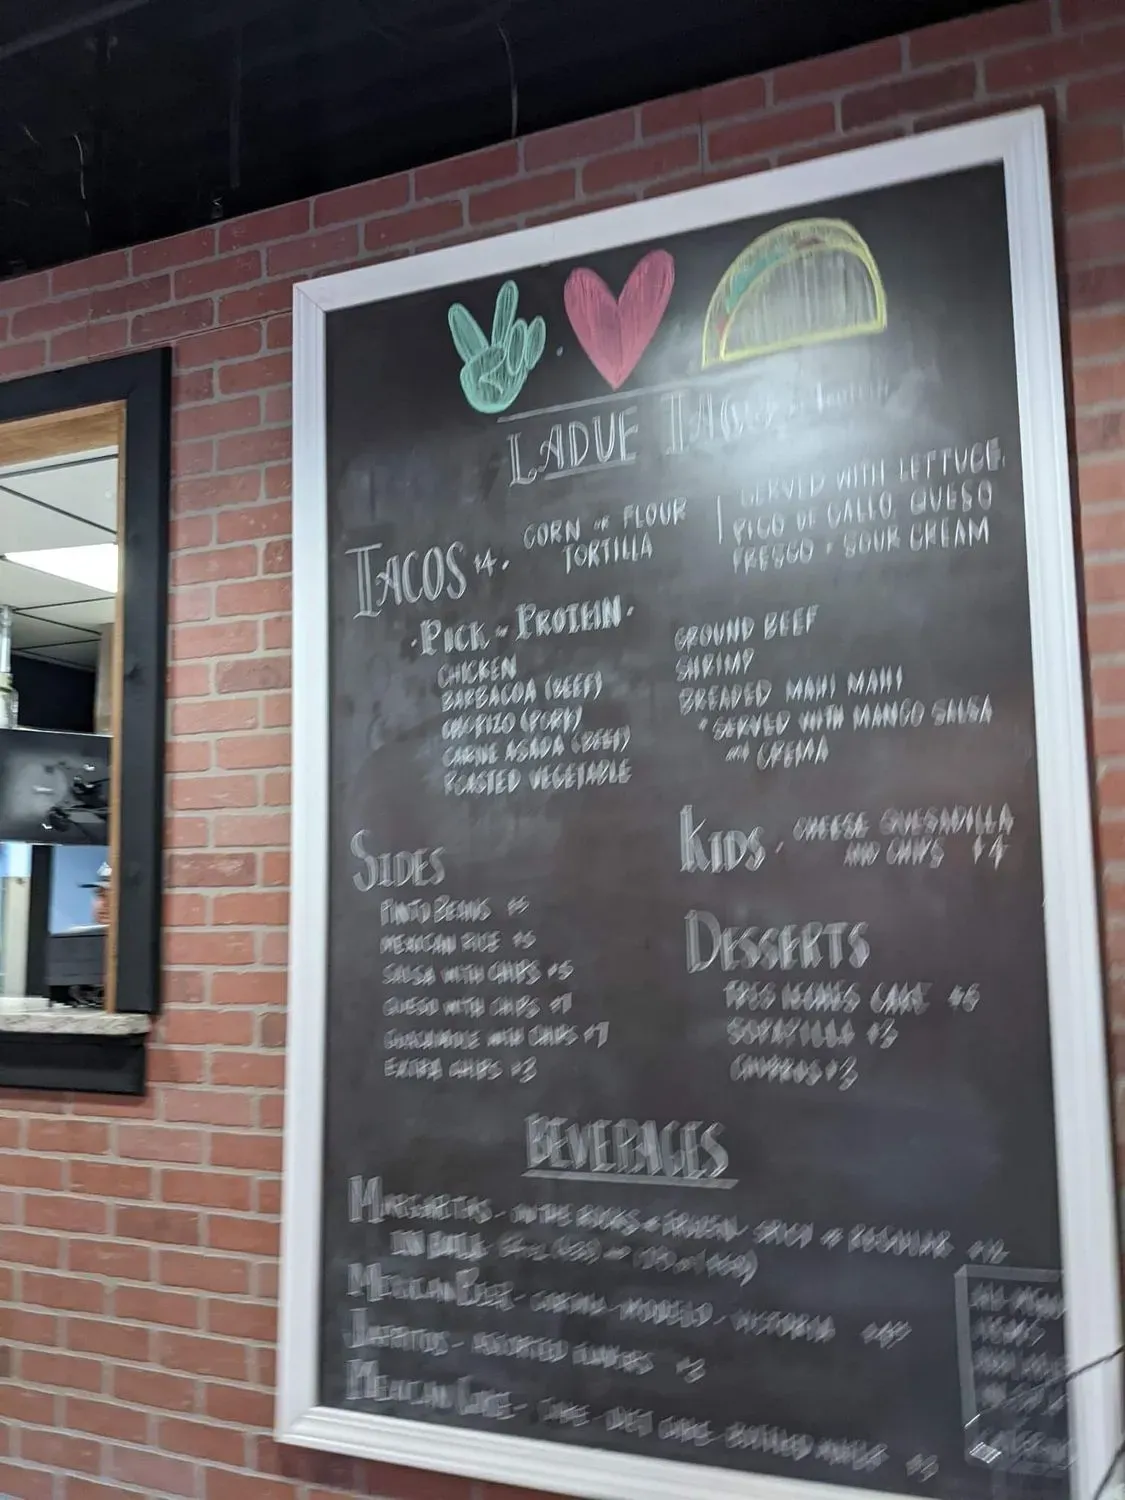 LADUE TACO
TACOS $4. CORN OR FLOUR TORTILLA
SERVED WITH LETTUCE,
PICO DE GALLO, QUESO
FRESCO + SOUR CREAM
· PICK A PROTEIN ·
CHICKEN
BARBACOA (BEEF)
CHORIZO (PORK)
CARNE ASADA (BEEF)
ROASTED VEGETABLE
GROUND BEEF
SHRIMP
BREADED MAHI MAHI
* SERVED WITH MANGO SALSA
AND CREMA
SIDES
PINTO BEANS $5
MEXICAN RICE $5
SALSA WITH CHIPS $5
QUESO WITH CHIPS $7
GUACAMOLE WITH CHIPS $7
EXTRA CHIPS $3
KIDS · CHEESE QUESADILLA
AND CHIPS $4
DESSERTS
TRES LECHES CAKE $6
SOPAPILLA $3
CHURROS $3
BEVERAGES
MARGARITAS - ON THE ROCKS OR FROZEN - SPICY OR REGULAR
MEXICAN BEER - CORONA - MODELO - VICTORIA
JARRITOS - ASSORTED FLAVORS $3
MEXICAN COKE - COKE - DIET COKE - BOTTLED WATER $3